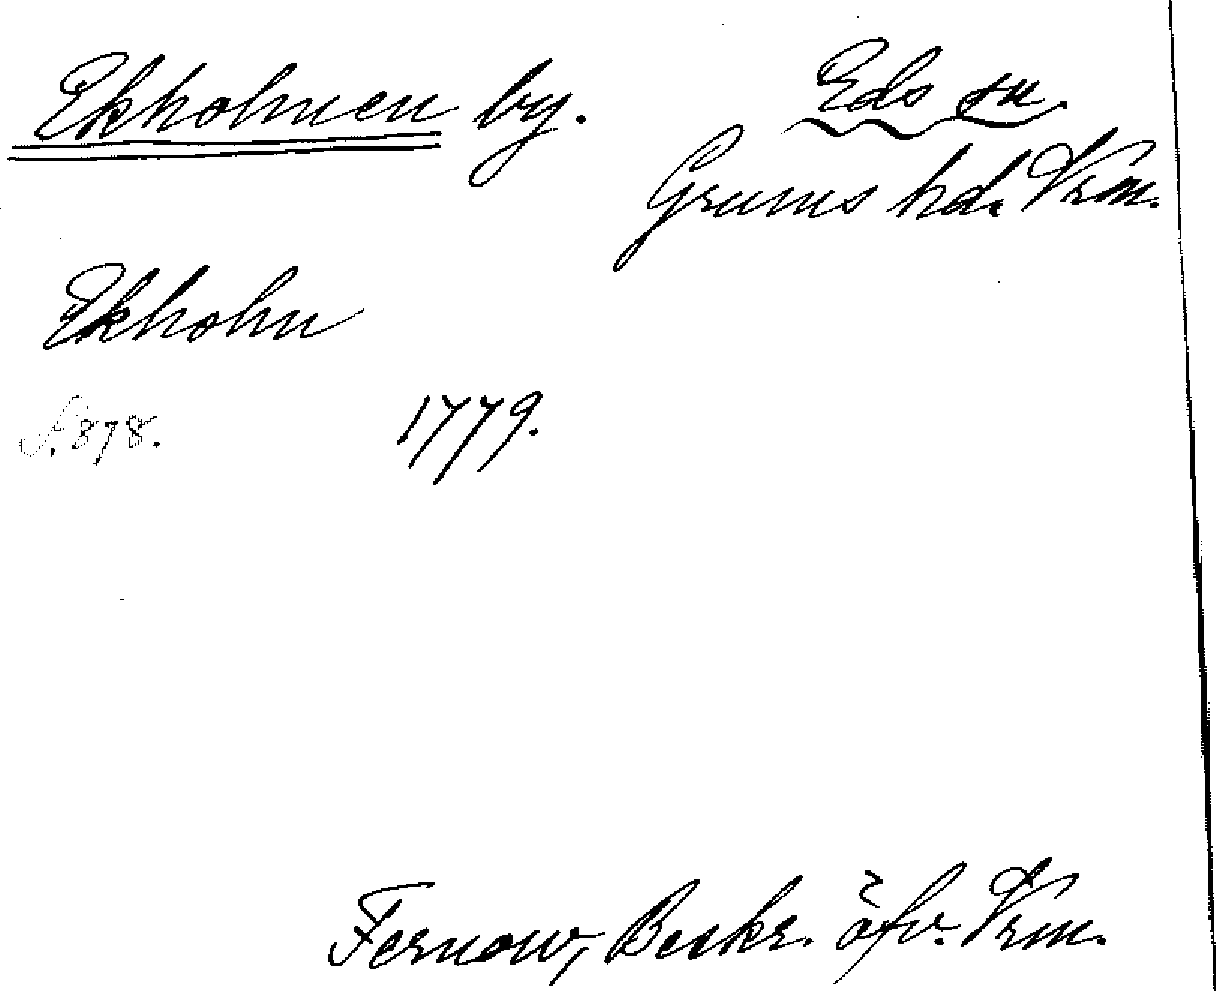 Ekholmen by.
Eds sn.
Grums hd. Vrm.
Ekholm
S. 878.
1779.
Fernow, Beskr. öfv. Vrm.